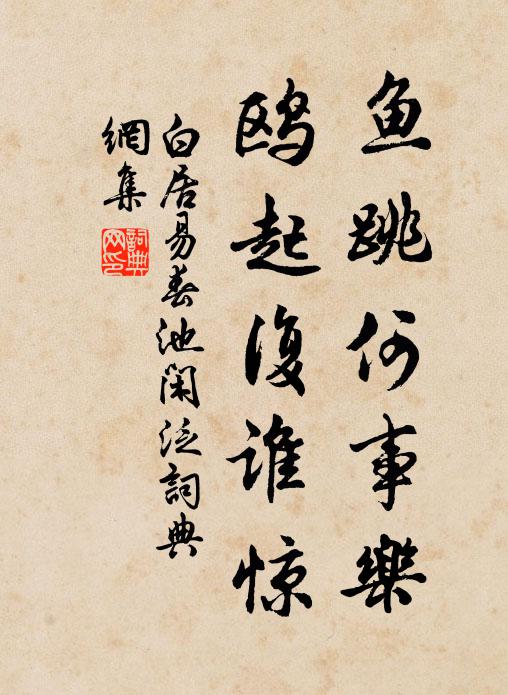 鱼跳何事樂
鸥起復谁惊
白居易春池闲泛詞典
網集
詞典
网印